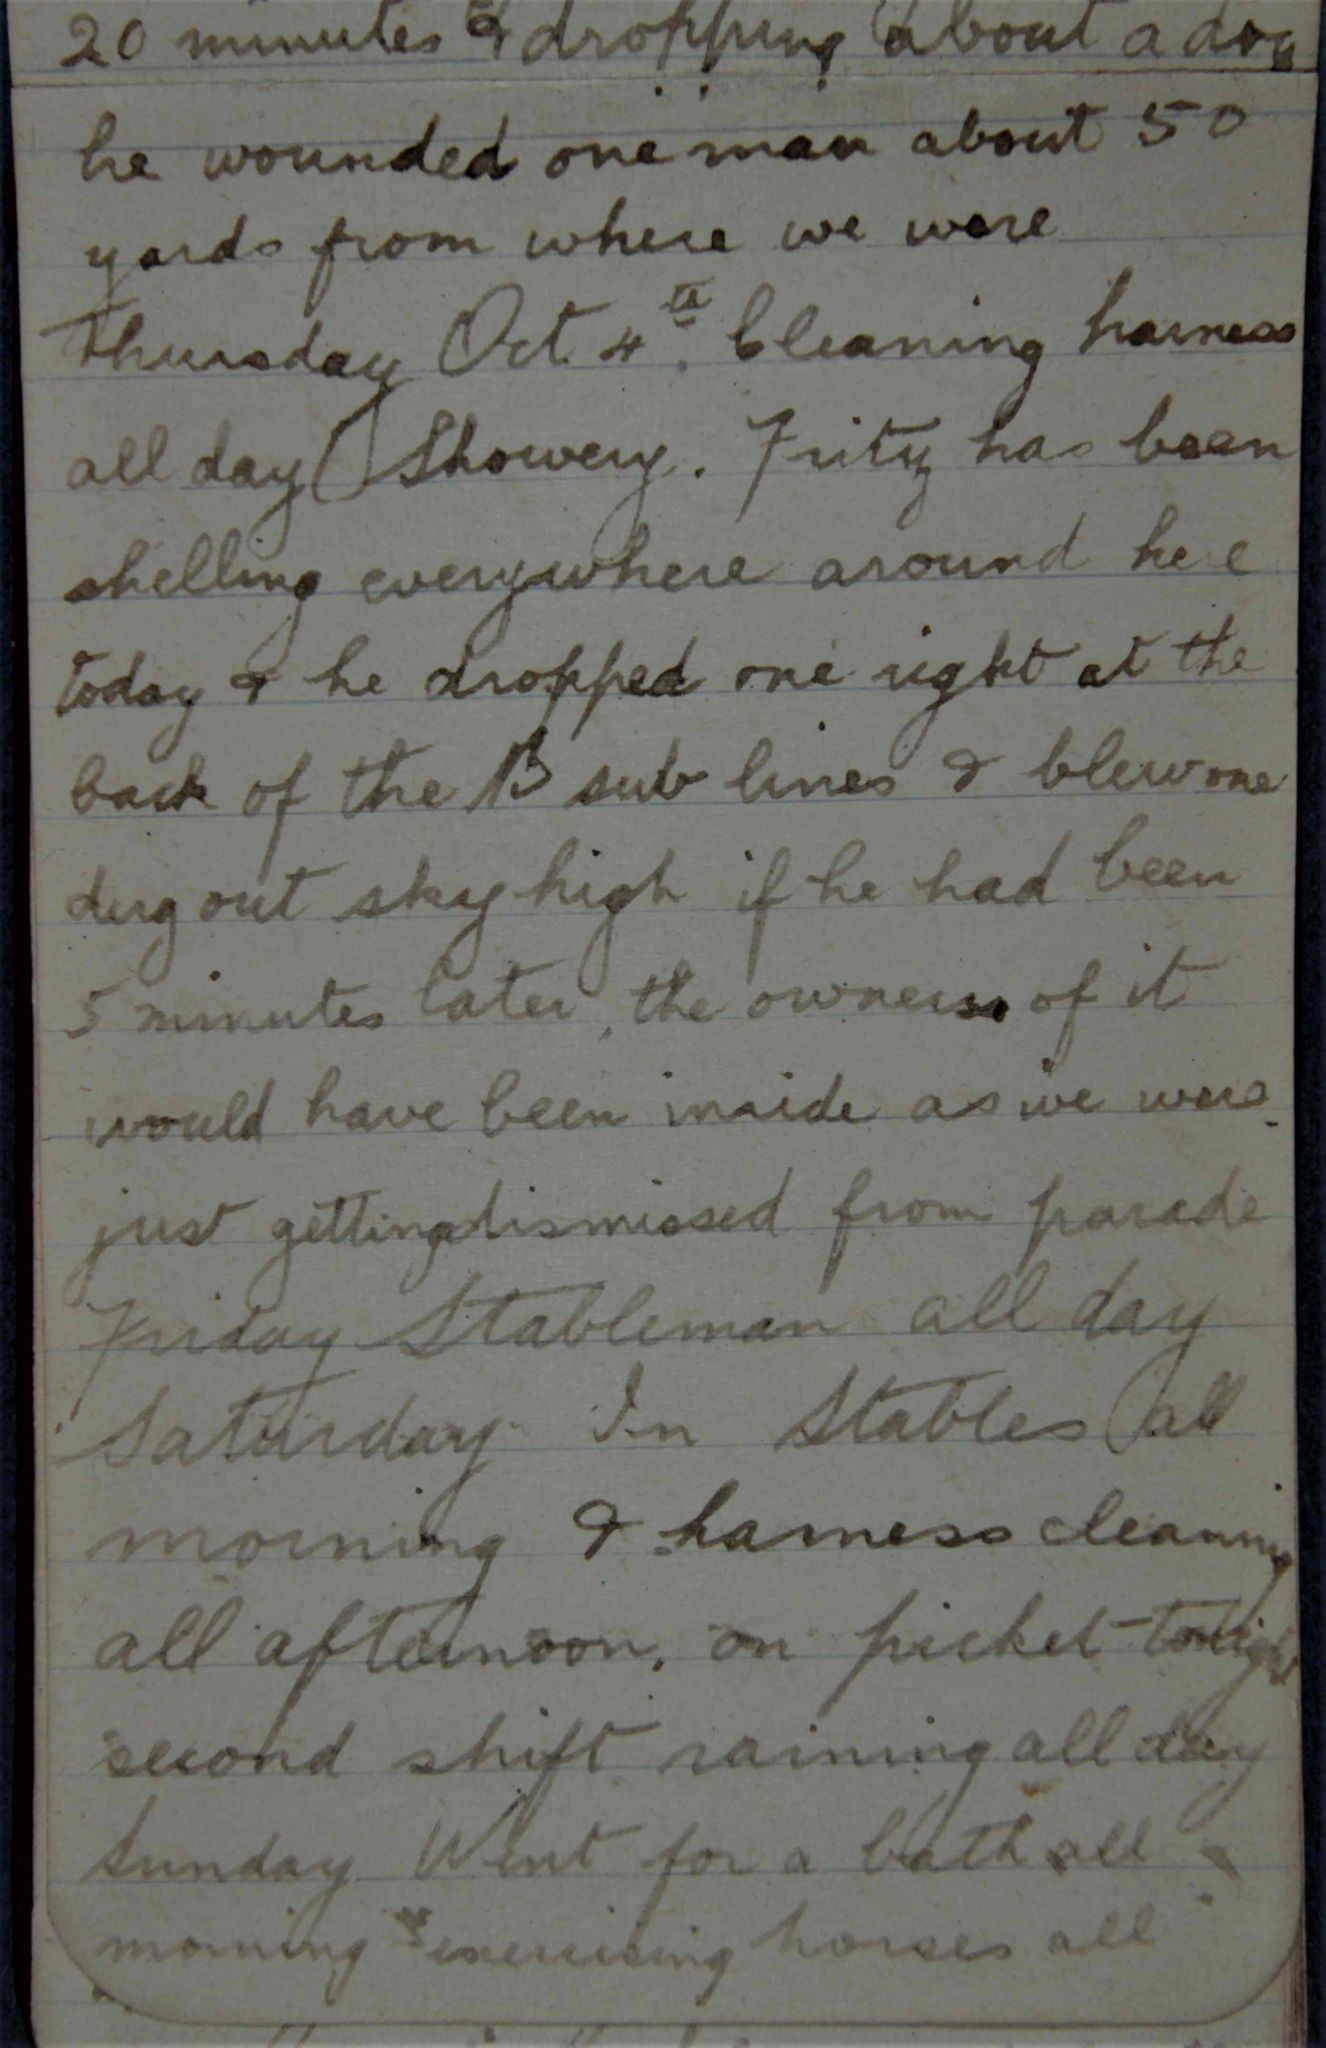 20 minutes & dropping about a doz
he wounded one man about 50
yards from where we were
Thursday Oct 4th. Cleaning harness
all day Showery. Fritz has been
shelling everywhere around here
today & he dropped one right at the
back of the B sub lines & blew one
dug out sky high if he had been
5 minutes later, the owners of it
would have been inside as we were
just getting dismissed from parade
Friday Stableman all day
Saturday In Stables all
morning & harness cleaning
all afternoon, on picket tonight
second shift raining all day
Sunday Went for a bath all
morning & exercising horses all